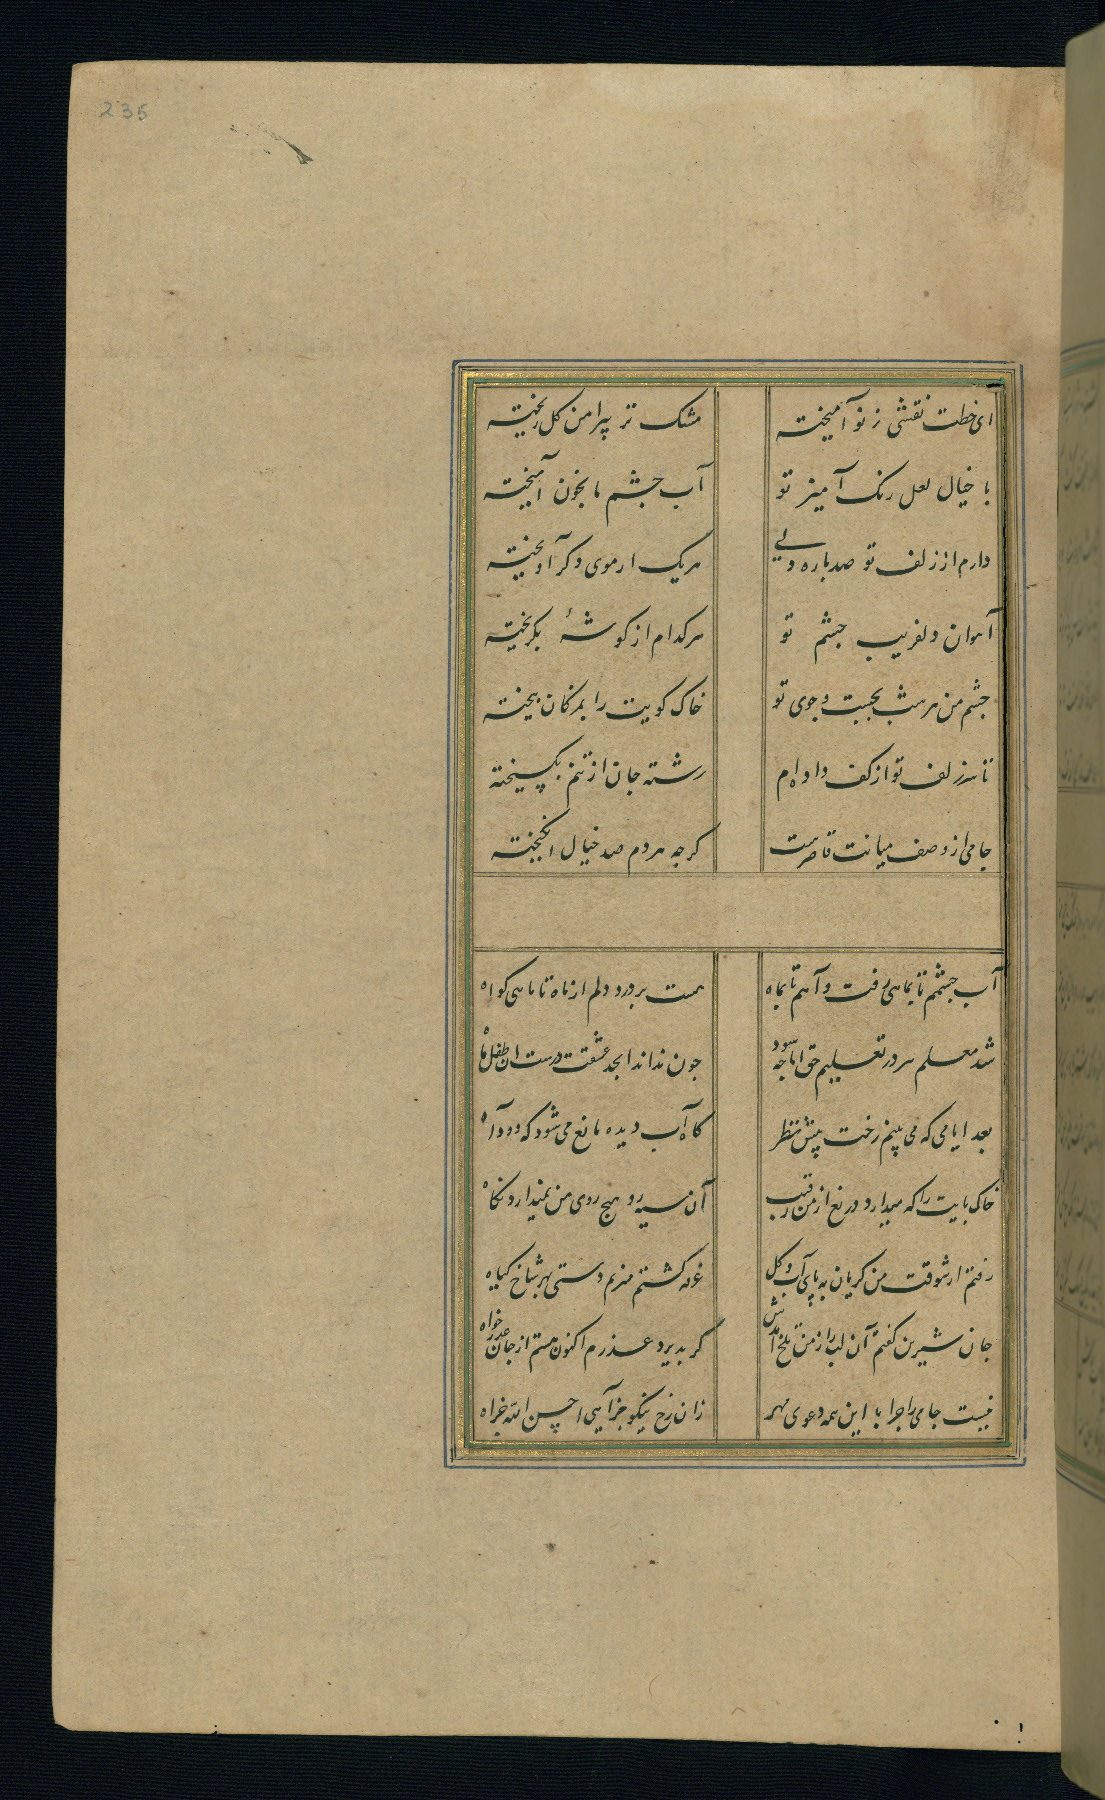 235
ای خطت نقشی ز نو آمیخته مشک تر پیرامن کل ریخته
با خیال لعل رنک آمیز تو آب جشم ما بخون آمیخته
دارم از زلف تو صد باره دلی هریک از موی دکر آویخته
آهوان دلفریب جشم تو هرکدام از کوشهٔ بکریخته
جشم من هر شب بجست و جوی تو خاک کویت را بمژکان بیخته
تا سر زلف تو از کف داده ام رشته جان از تنم بکسیخته
جامی از وصف میانت قاصرست کرجه هردم صد خیال انکیخته
آب جشمم تا بماهی رفت و آهم تا بماه هست بر درد دلم از ماه تا ماهی کواه
شد معلم سر در تعلیم حق اما جه سود جون نداند ابجد عشقت درست ان طفل ما
بعد ایامی که می بینم رخت پیش نظر کاه آب دیده مانع می شود که دود آه
خاک بایت را که میدارد دریغ از من رقیب آن سیه رو هیج روی من نمیدارد نکاه
رفتم از شوقت من کریان به پای آب و کل غرقه کشتم میزنم دستی بهر شاخ کیاه
جان شیرین کفتم آن لب را ز من تلخ آمدش کر بذیرد عذرم اکنون هستم از جان عذر خواه
نیست جامی را جز با این همه دعوی مهر زان رخ نیکو جز آهی احسن الله جزاه